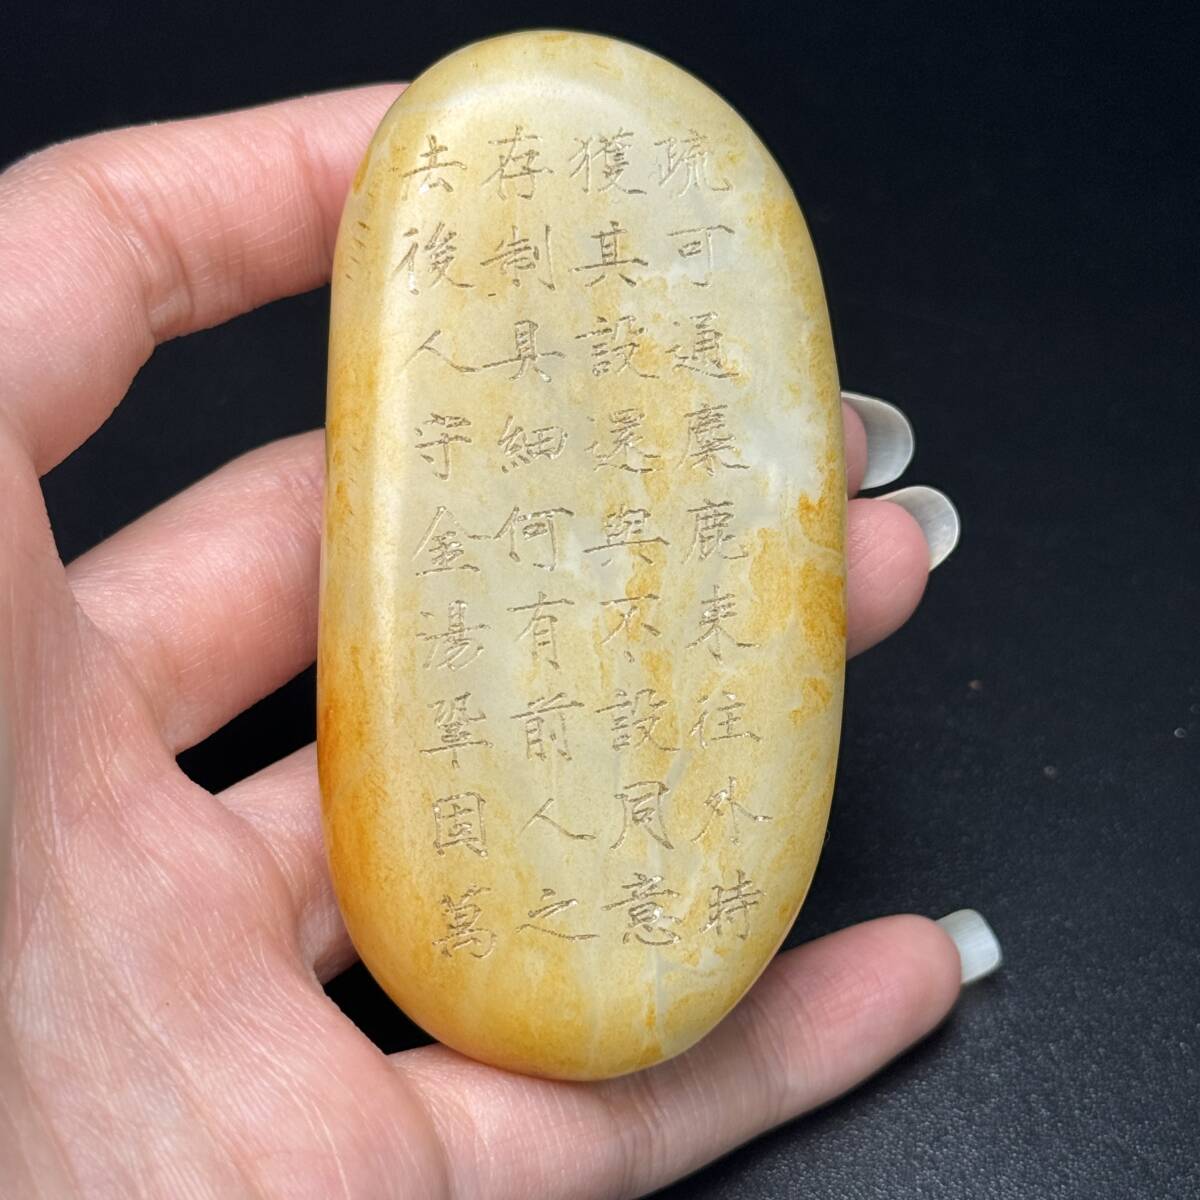 疏可通麋鹿来往外時
獲其設還與不設同意
存制具細何有前人之
去後人守金湯鞏固萬